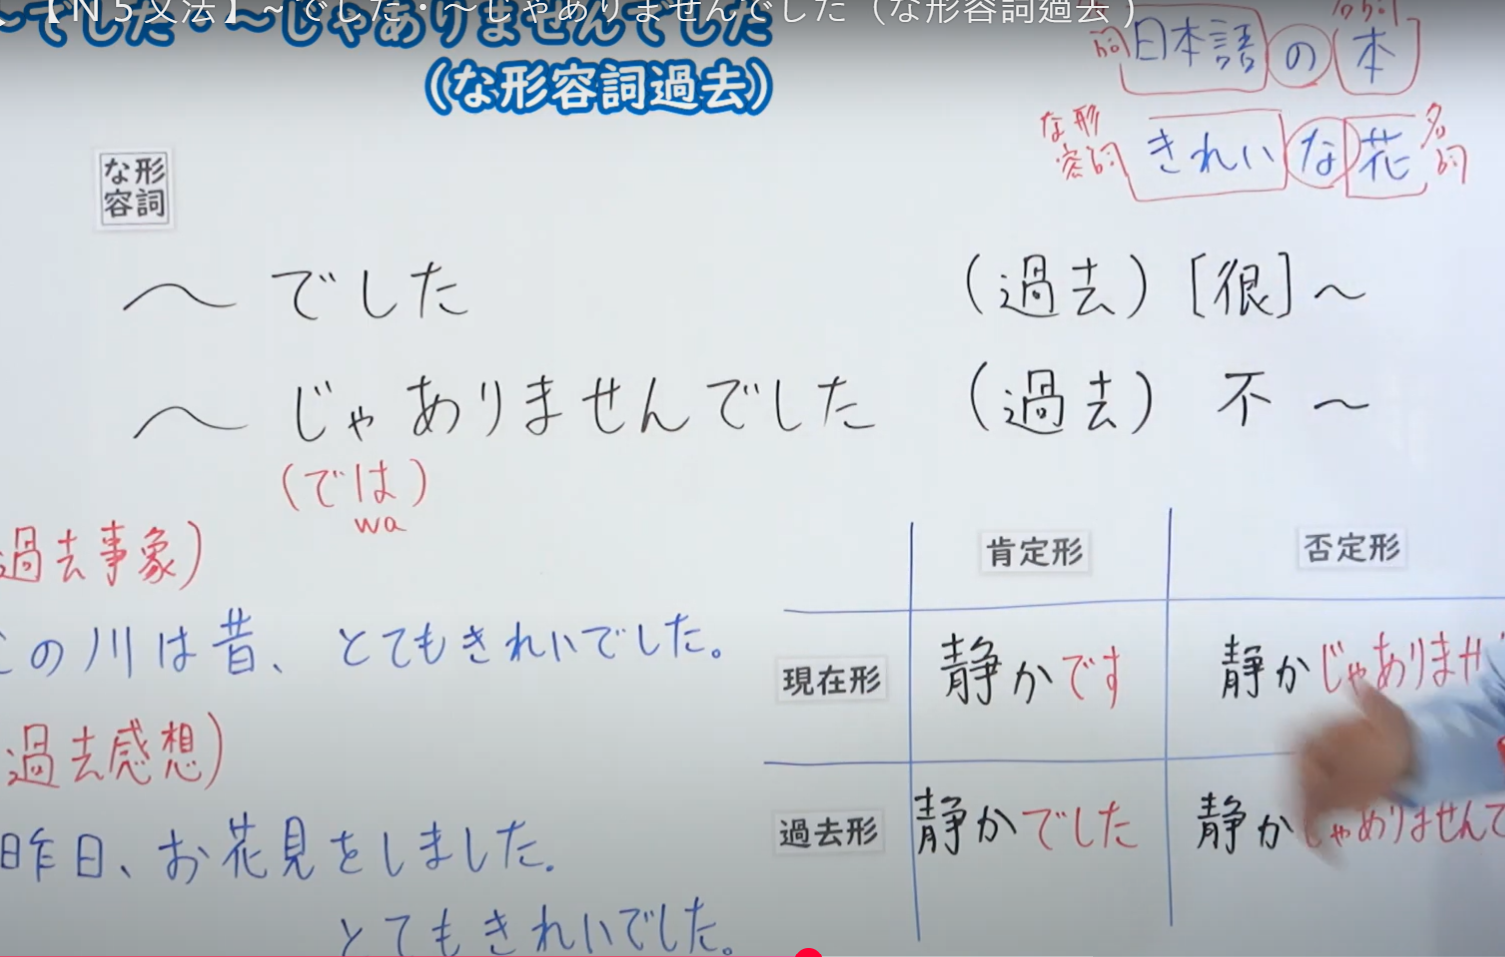 【Ｎ５文法】～でした・～じゃありませんでした（な形容詞過去）
～でした・～じゃありませんでした
(な形容詞過去)
日本語の本
な形容詞 きれいな花 名詞
な形
容詞
～でした (過去) [很]～
～じゃありませんでした (過去) 不～
(では)
wa
過去事象)
この川は昔、とてもきれいでした。
過去感想)
昨日、お花見をしました。
とてもきれいでした。
肯定形 否定形
現在形 静かです 静かじゃありませ
過去形 静かでした 静かじゃありませんで